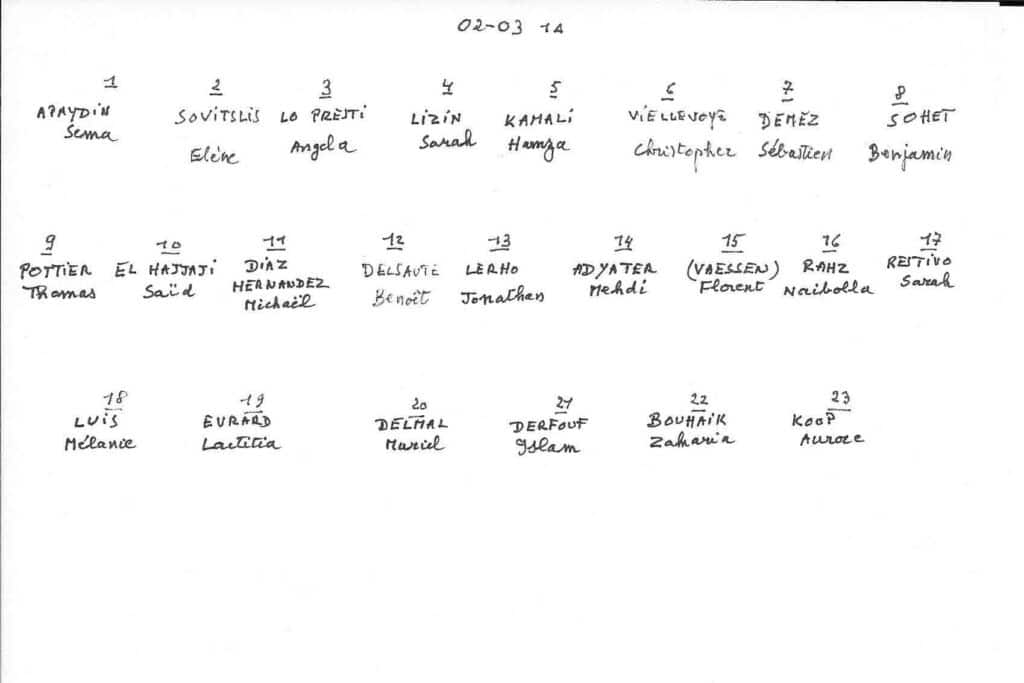 02-03 1A
1 2 3 4 5 6 7 8
APAYDIN SOVITSLIS LO PRESTI LIZIN KAMALI VIELLEVOYE DEMEZ SOHET
Sema Elène Angela Sarah Hamza Christopher Sébastien Benjamin
9 10 11 12 13 14 15 16 17
POTTIER EL HAJJAJI DIAZ DELSAUTE LERHO ADYATER (VAESSEN) RAHZ RESTIVO
HERNANDEZ
Thomas Saïd Michaël Benoît Jonathan Mehdi Florent Naibolla Sarah
18 19 20 21 22 23
LUIS EVRARD DELMAL DERFOUF BOUHAIK KOOP
Mélanie Laetitia Muriel Islam Zakaria Aurore